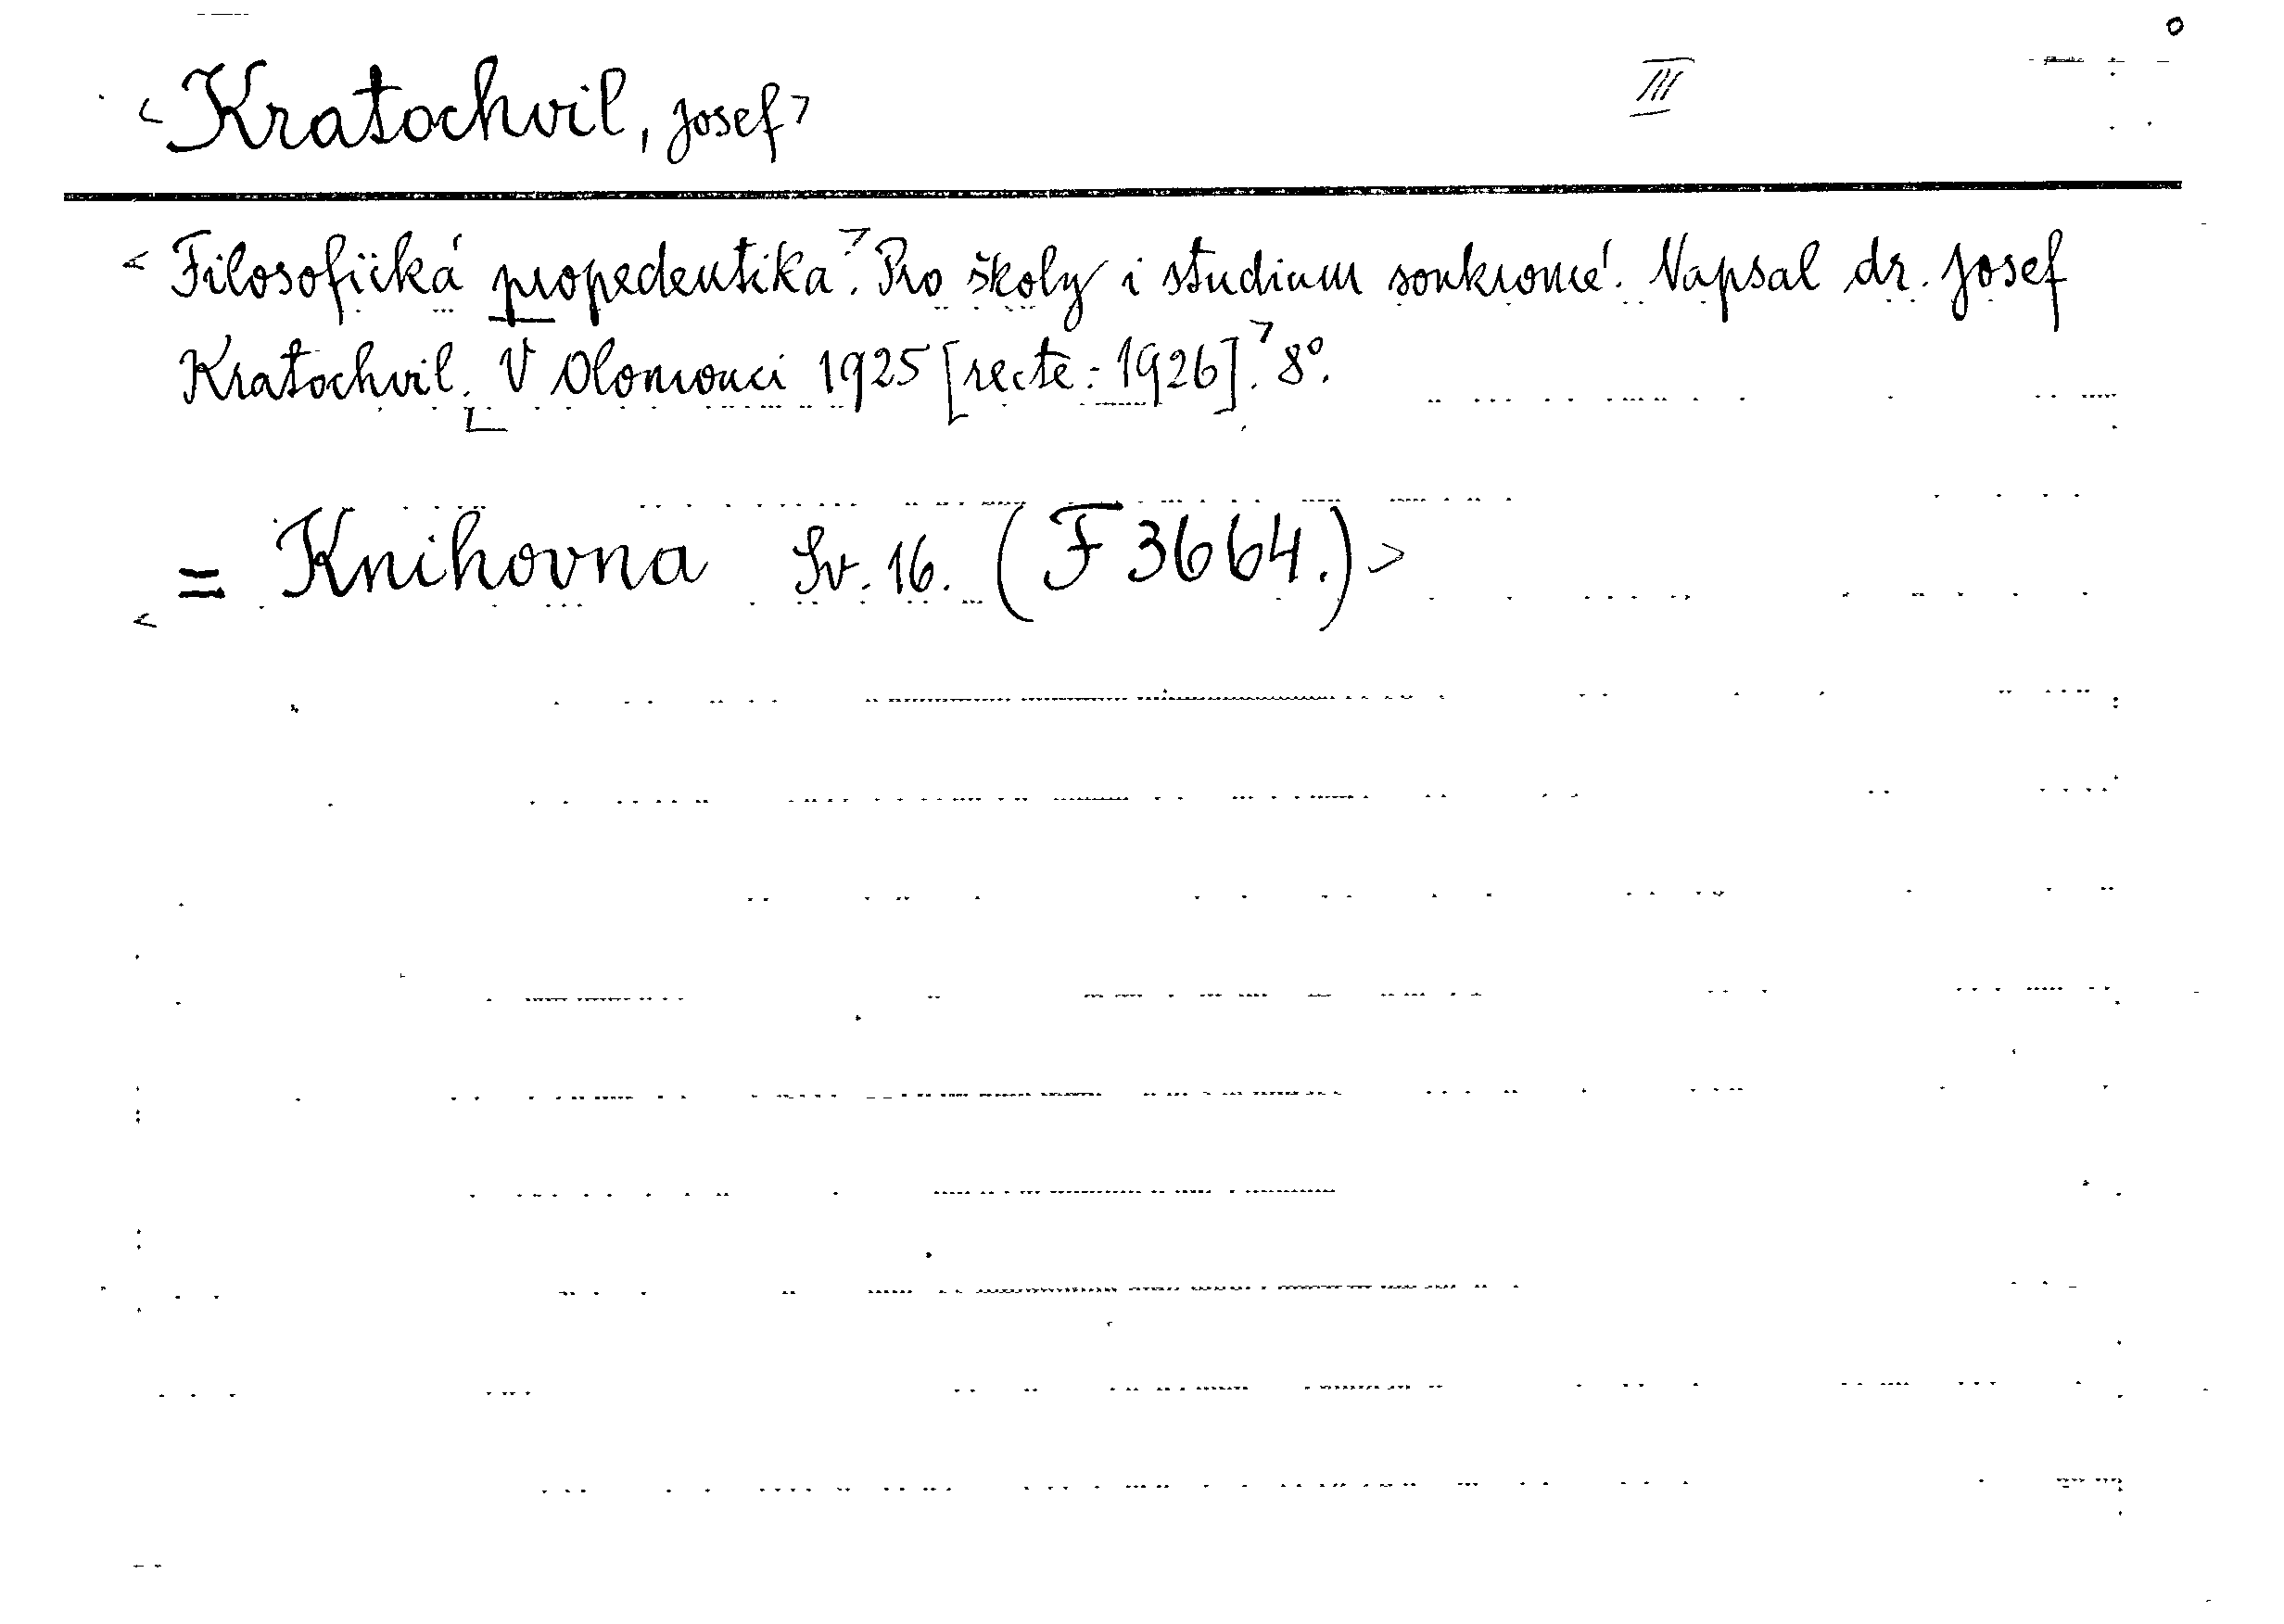 <Kratochvil, Josef> III
<Filosofická propedeutika.> Pro školy i studium soukromé. Napsal dr. Josef
Kratochvil. V Olomouci 1925 [recte: 1926].> 8°.
= Knihovna Sv. 16. (F 3664.)>